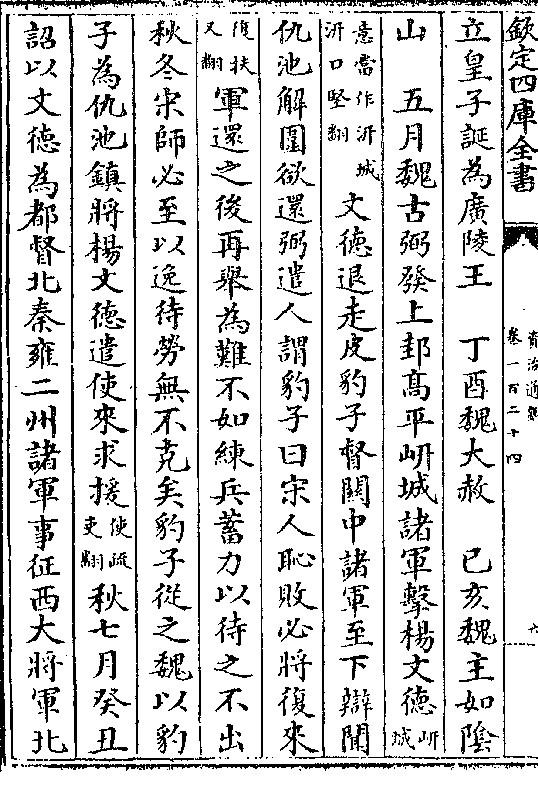 欽定四庫全書
資治通鑑
卷一百二十四
立皇子誕為廣陵王 丁酉魏大赦 已亥魏主如陰
山 五月魏古弼發上邽高平岍城諸軍擊楊文德岍城
意當作汧城
汧口堅翻
文德退走皮豹子督關中諸軍至下辯聞
仇池解圍欲還弼遣人謂豹子曰宋人恥敗必將復來
復扶
又翻
軍還之後再舉為難不如練兵蓄力以待之不出
秋冬宋師必至以逸待勞無不克矣豹子從之魏以豹
子為仇池鎮將楊文德遣使來求援使疏
吏翻
秋七月癸丑
詔以文德為都督北秦雍二州諸軍事征西大將軍北